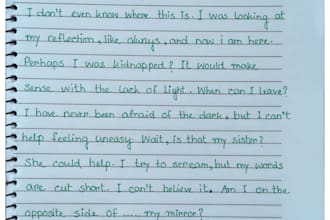 I don't even know where this is. I was looking at
my reflection, like always, and now i am here.
Perhaps I was kidnapped? It would make
sense with the lack of light. When can I leave?
I have never been afraid of the dark, but I can't
help feeling uneasy. Wait, is that my sister?
She could help. I try to scream, but my words
are cut short. I can't believe it. Am I on the
opposite side of ..... my mirror?